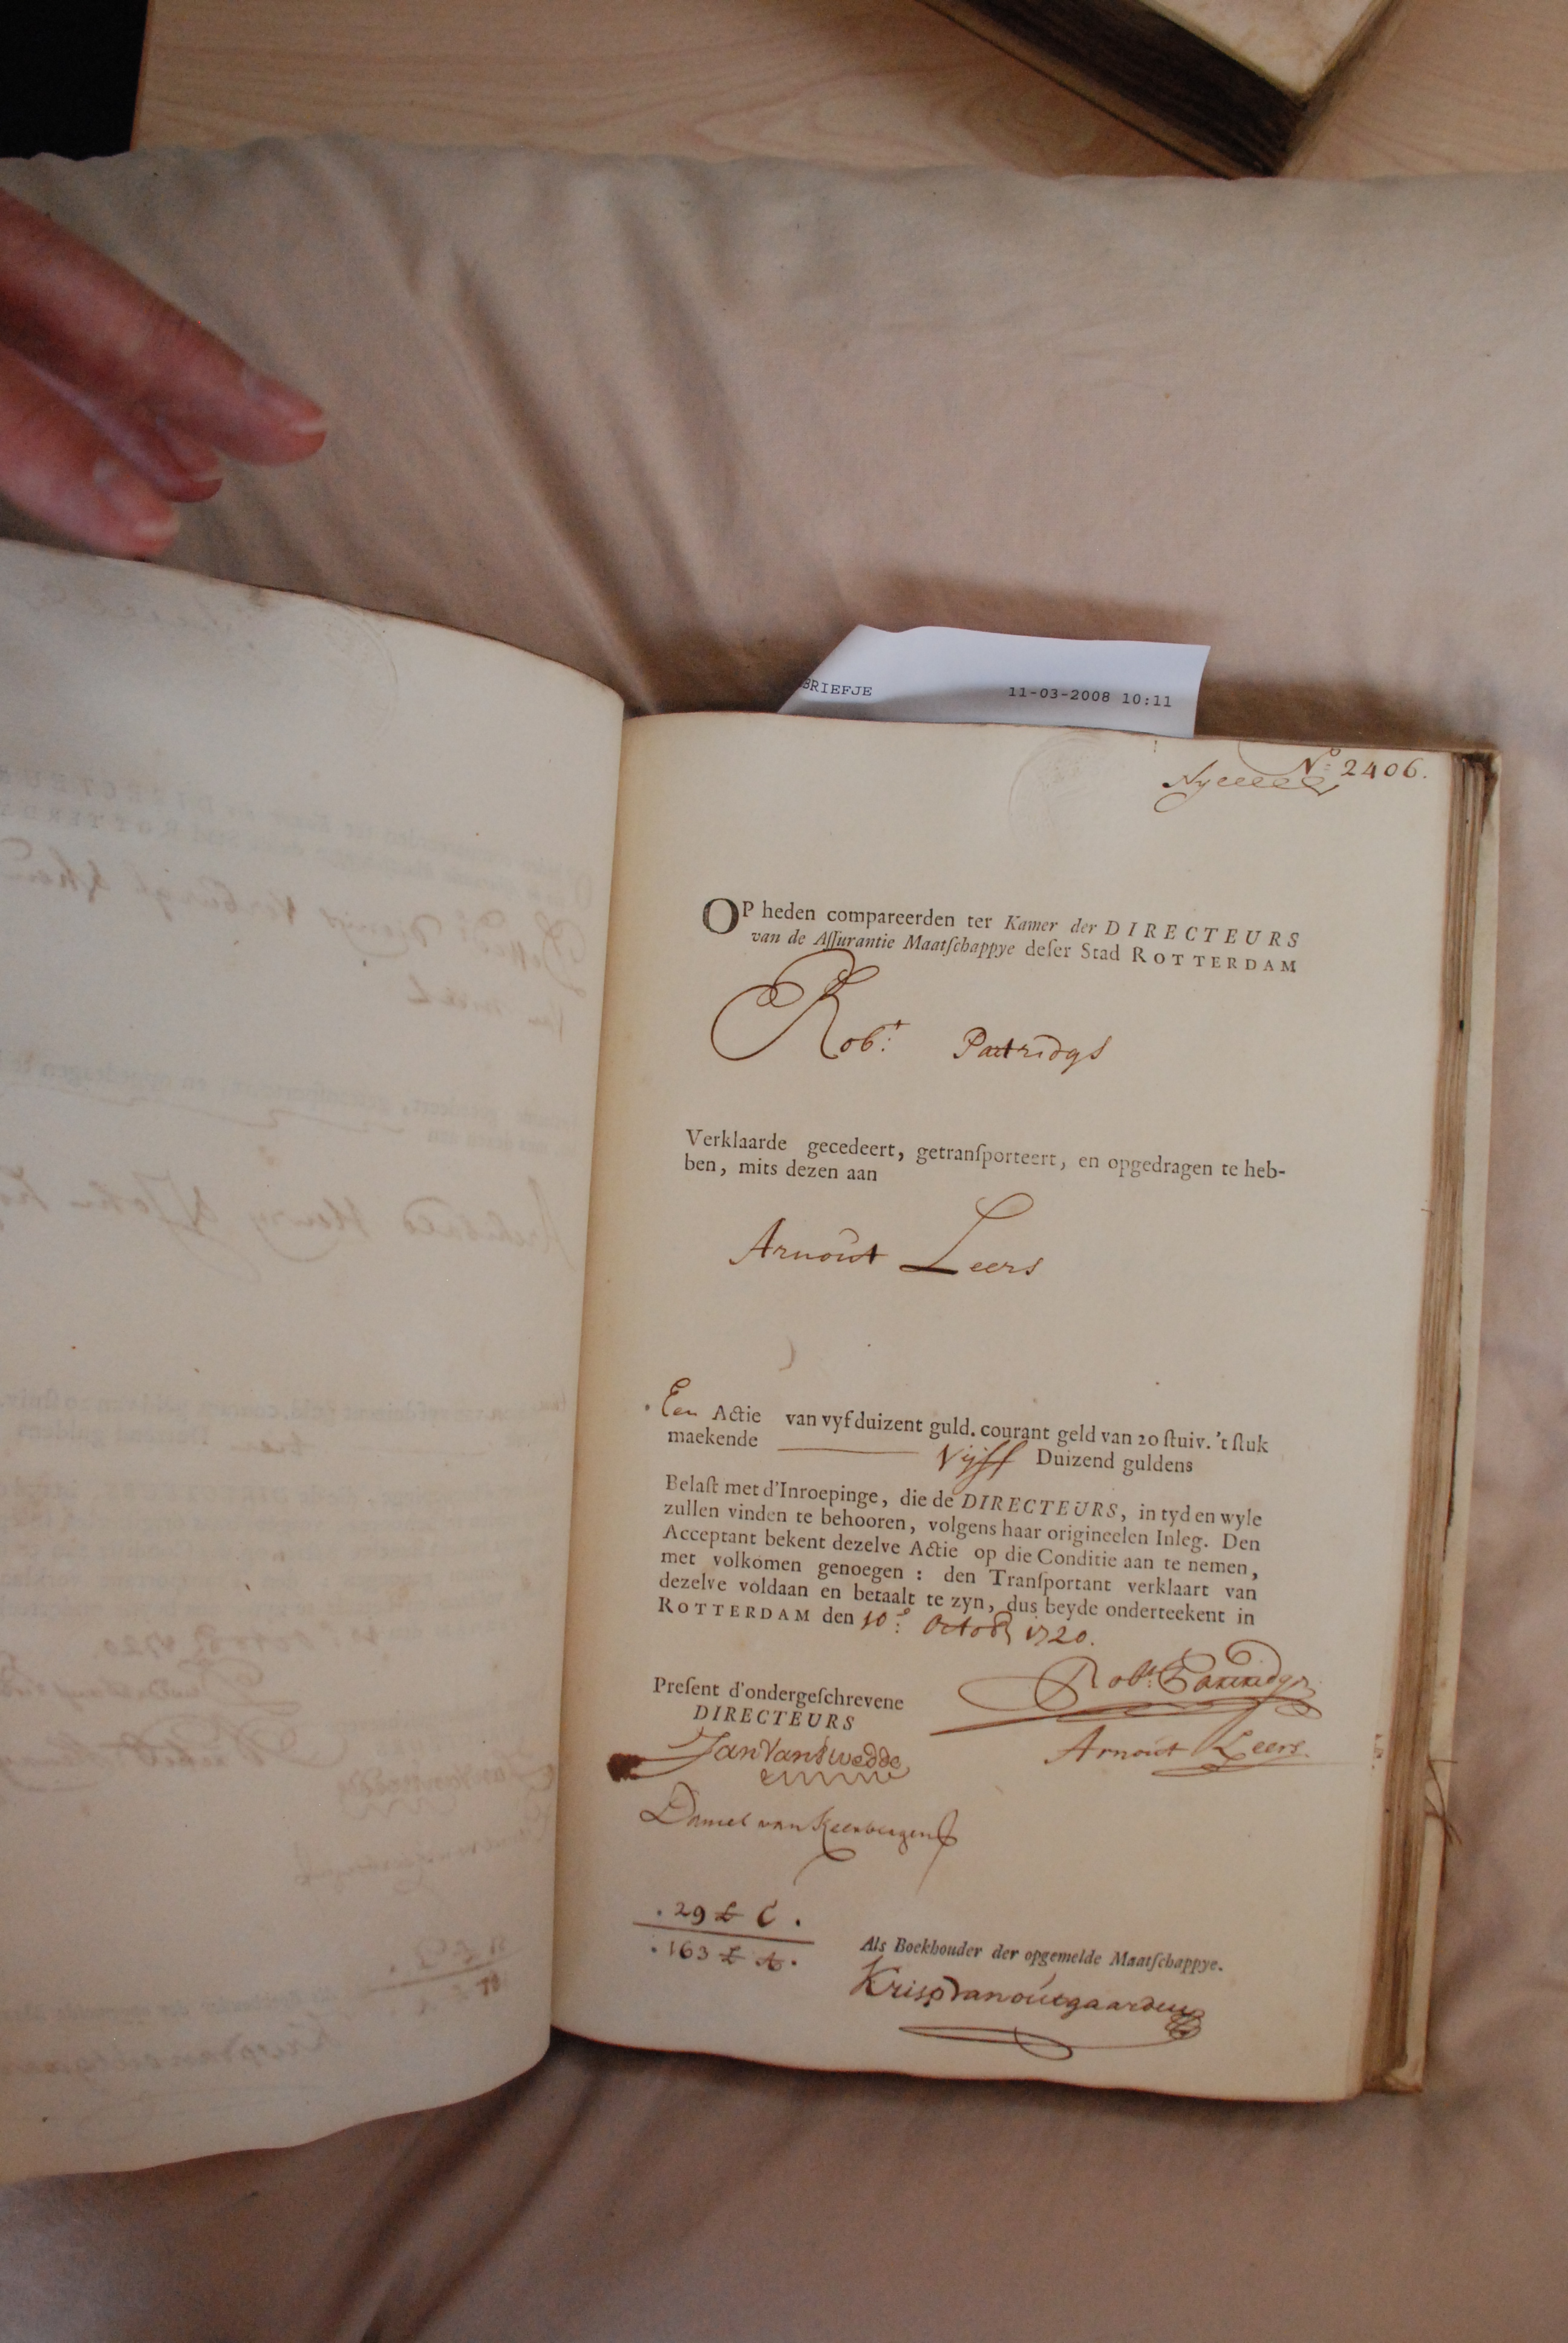 BRIEFJE 11-03-2008 10:11
No: 2406.
OP heden compareerden ter Kamer der DIRECTEURS
van de Aſſurantie Maatſchappye deſer Stad ROTTERDAM
Robt: Partridge
Verklaarde gecedeert, getranſporteert, en opgedragen te heb-
ben, mits dezen aan
Arnout Leers
Een Actie van vyfduizent guld. courant geld van 20 ſtuiv. 't ſtuk
maekende Vijff Duizend guldens
Belaſt met d'Inroepinge, die de DIRECTEURS, in tyd en wyle
zullen vinden te behooren, volgens haar origineelen Inleg. Den
Acceptant bekent dezelve Actie op die Conditie aan te nemen,
met volkomen genoegen : den Tranſportant verklaart van
dezelve voldaan en betaalt te zyn, dus beyde onderteekent in
ROTTERDAM den 10e: Octob 1720.
Robt: Partridge
Preſent d'ondergeſchrevene
DIRECTEURS
Arnout Leers.
Jan Van Swedde
Daniel van Keerbergen
. 29 £ C .
. 163 £ A .
Als Boekhouder der opgemelde Maatſchappye.
Krisp Van outgaarden